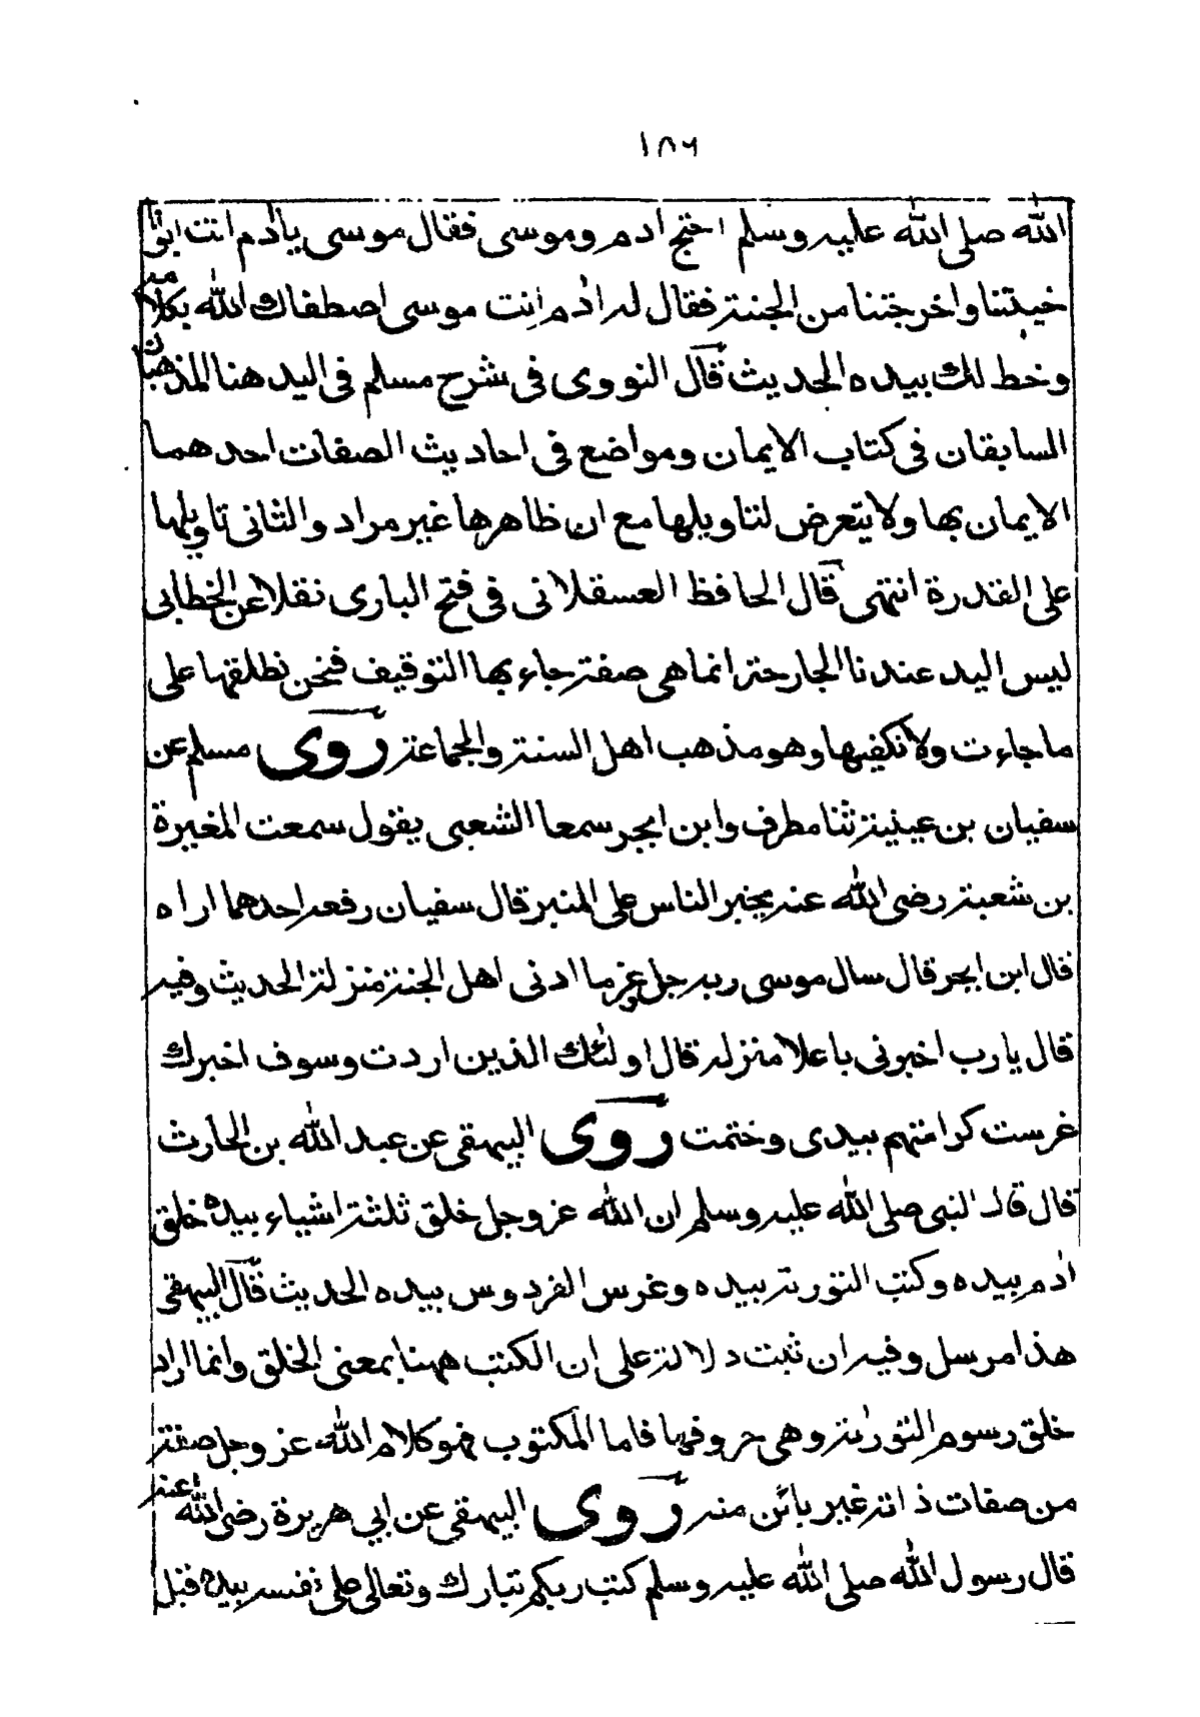 ١٨٦
الله صلى الله عليه وسلم احتج ادم وموسى فقال موسى يا ادم انت ابونا
خيبتنا واخرجتنا من الجنة فقال له ادم انت موسى اصطفاك الله بكلامه
وخط لك بيده الحديث قال النووى فى شرح مسلم فى اليد هنا المذهبان
السابقان فى كتاب الايمان ومواضع فى احاديث الصفات احدهما
الايمان بها ولا يتعرض لتاويلها مع ان ظاهرها غير مراد والثانى تاويلها
على القدرة انتهى قال الحافظ العسقلانى فى فتح البارى نقلا عن الخطابى
ليس اليد عندنا الجارحة انما هى صفة جاء بها التوقيف فنحن نطلقها على
ما جاءت ولا نكفيها وهو مذهب اهل السنة والجماعة روى مسلم عن
سفيان بن عيينة ثنا مطرف وابن ابجر سمعا الشعبى يقول سمعت المغيرة
بن شعبة رضى الله عنه يخبر الناس على المنبر قال سفيان رفعه احدهما اراه
قال ابن ابجر قال سال موسى ربه جل عز ما ادنى اهل الجنة منزلة الحديث وفيه
قال يا رب اخبرنى باعلا منزله قال اولئك الذين اردت وسوف اخبرك
غرست كرامتهم بيدى وختمت روى البيهقى عن عبد الله بن الحارث
قال قال النبى صلى الله عليه وسلم ان الله عز وجل خلق ثلثة اشياء بيده خلق
ادم بيده وكتب التورىة بيده وغرس الفردوس بيده الحديث قال البيهقى
هذا مرسل وفيه ان ثبت دلالة على ان الكتب ههنا بمعنى الخلق وانما اراد
خلق رسوم التورىة وهى حروفها فاما المكتوب فهو كلام الله عز وجل صفة
من صفات ذاته غير بائن منه روى البيهقى عن ابي هريرة رضى الله عنه
قال رسول الله صلى الله عليه وسلم كتب ربكم تبارك وتعالى على نفسه بيده قبل